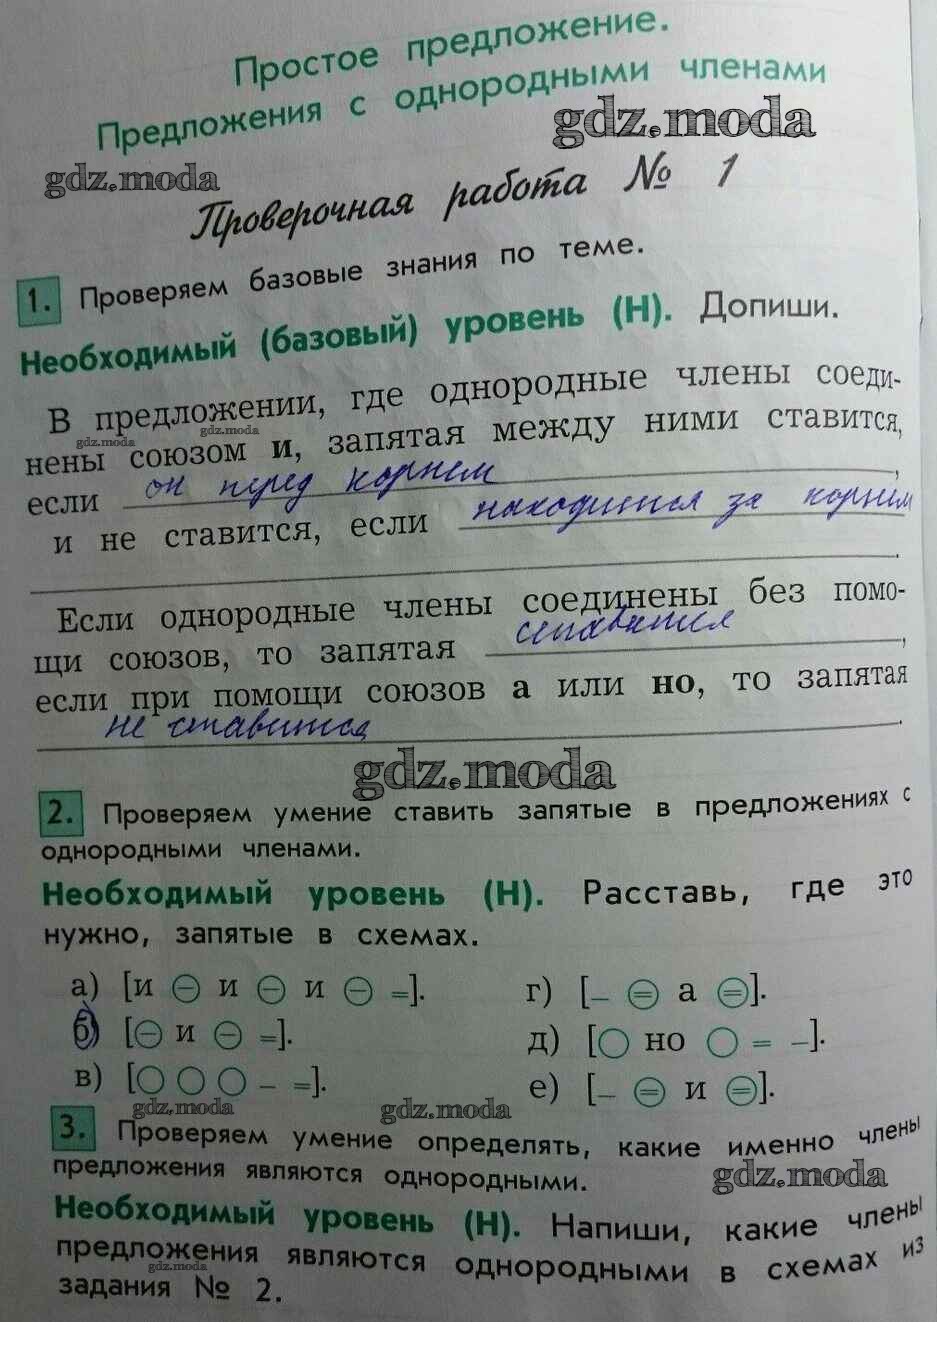 Простое предложение.
Предложения с однородными членами
gdz.moda
gdz.moda
Проверочная работа № 1
1. Проверяем базовые знания по теме.
Необходимый (базовый) уровень (Н). Допиши.
В предложении, где однородные члены соеди-
gdz.moda gdz.moda
нены союзом и, запятая между ними ставится,
если он перед корнем ,
и не ставится, если находится за корнем
.
Если однородные члены соединены без помо-
щи союзов, то запятая ставится ,
если при помощи союзов а или но, то запятая
не ставится .
gdz.moda
2. Проверяем умение ставить запятые в предложениях с
однородными членами.
Необходимый уровень (Н). Расставь, где это
нужно, запятые в схемах.
а) [и ⊖ и ⊖ и ⊖ =]. г) [– ⊜ а ⊜].
б) [⊖ и ⊖ =]. д) [○ но ○ = –].
в) [○ ○ ○ – =]. е) [– ⊜ и ⊜].
gdz.moda gdz.moda
3. Проверяем умение определять, какие именно члены
предложения являются однородными.
gdz.moda
Необходимый уровень (Н). Напиши, какие члены
предложения являются однородными в схемах из
gdz.moda
задания № 2.